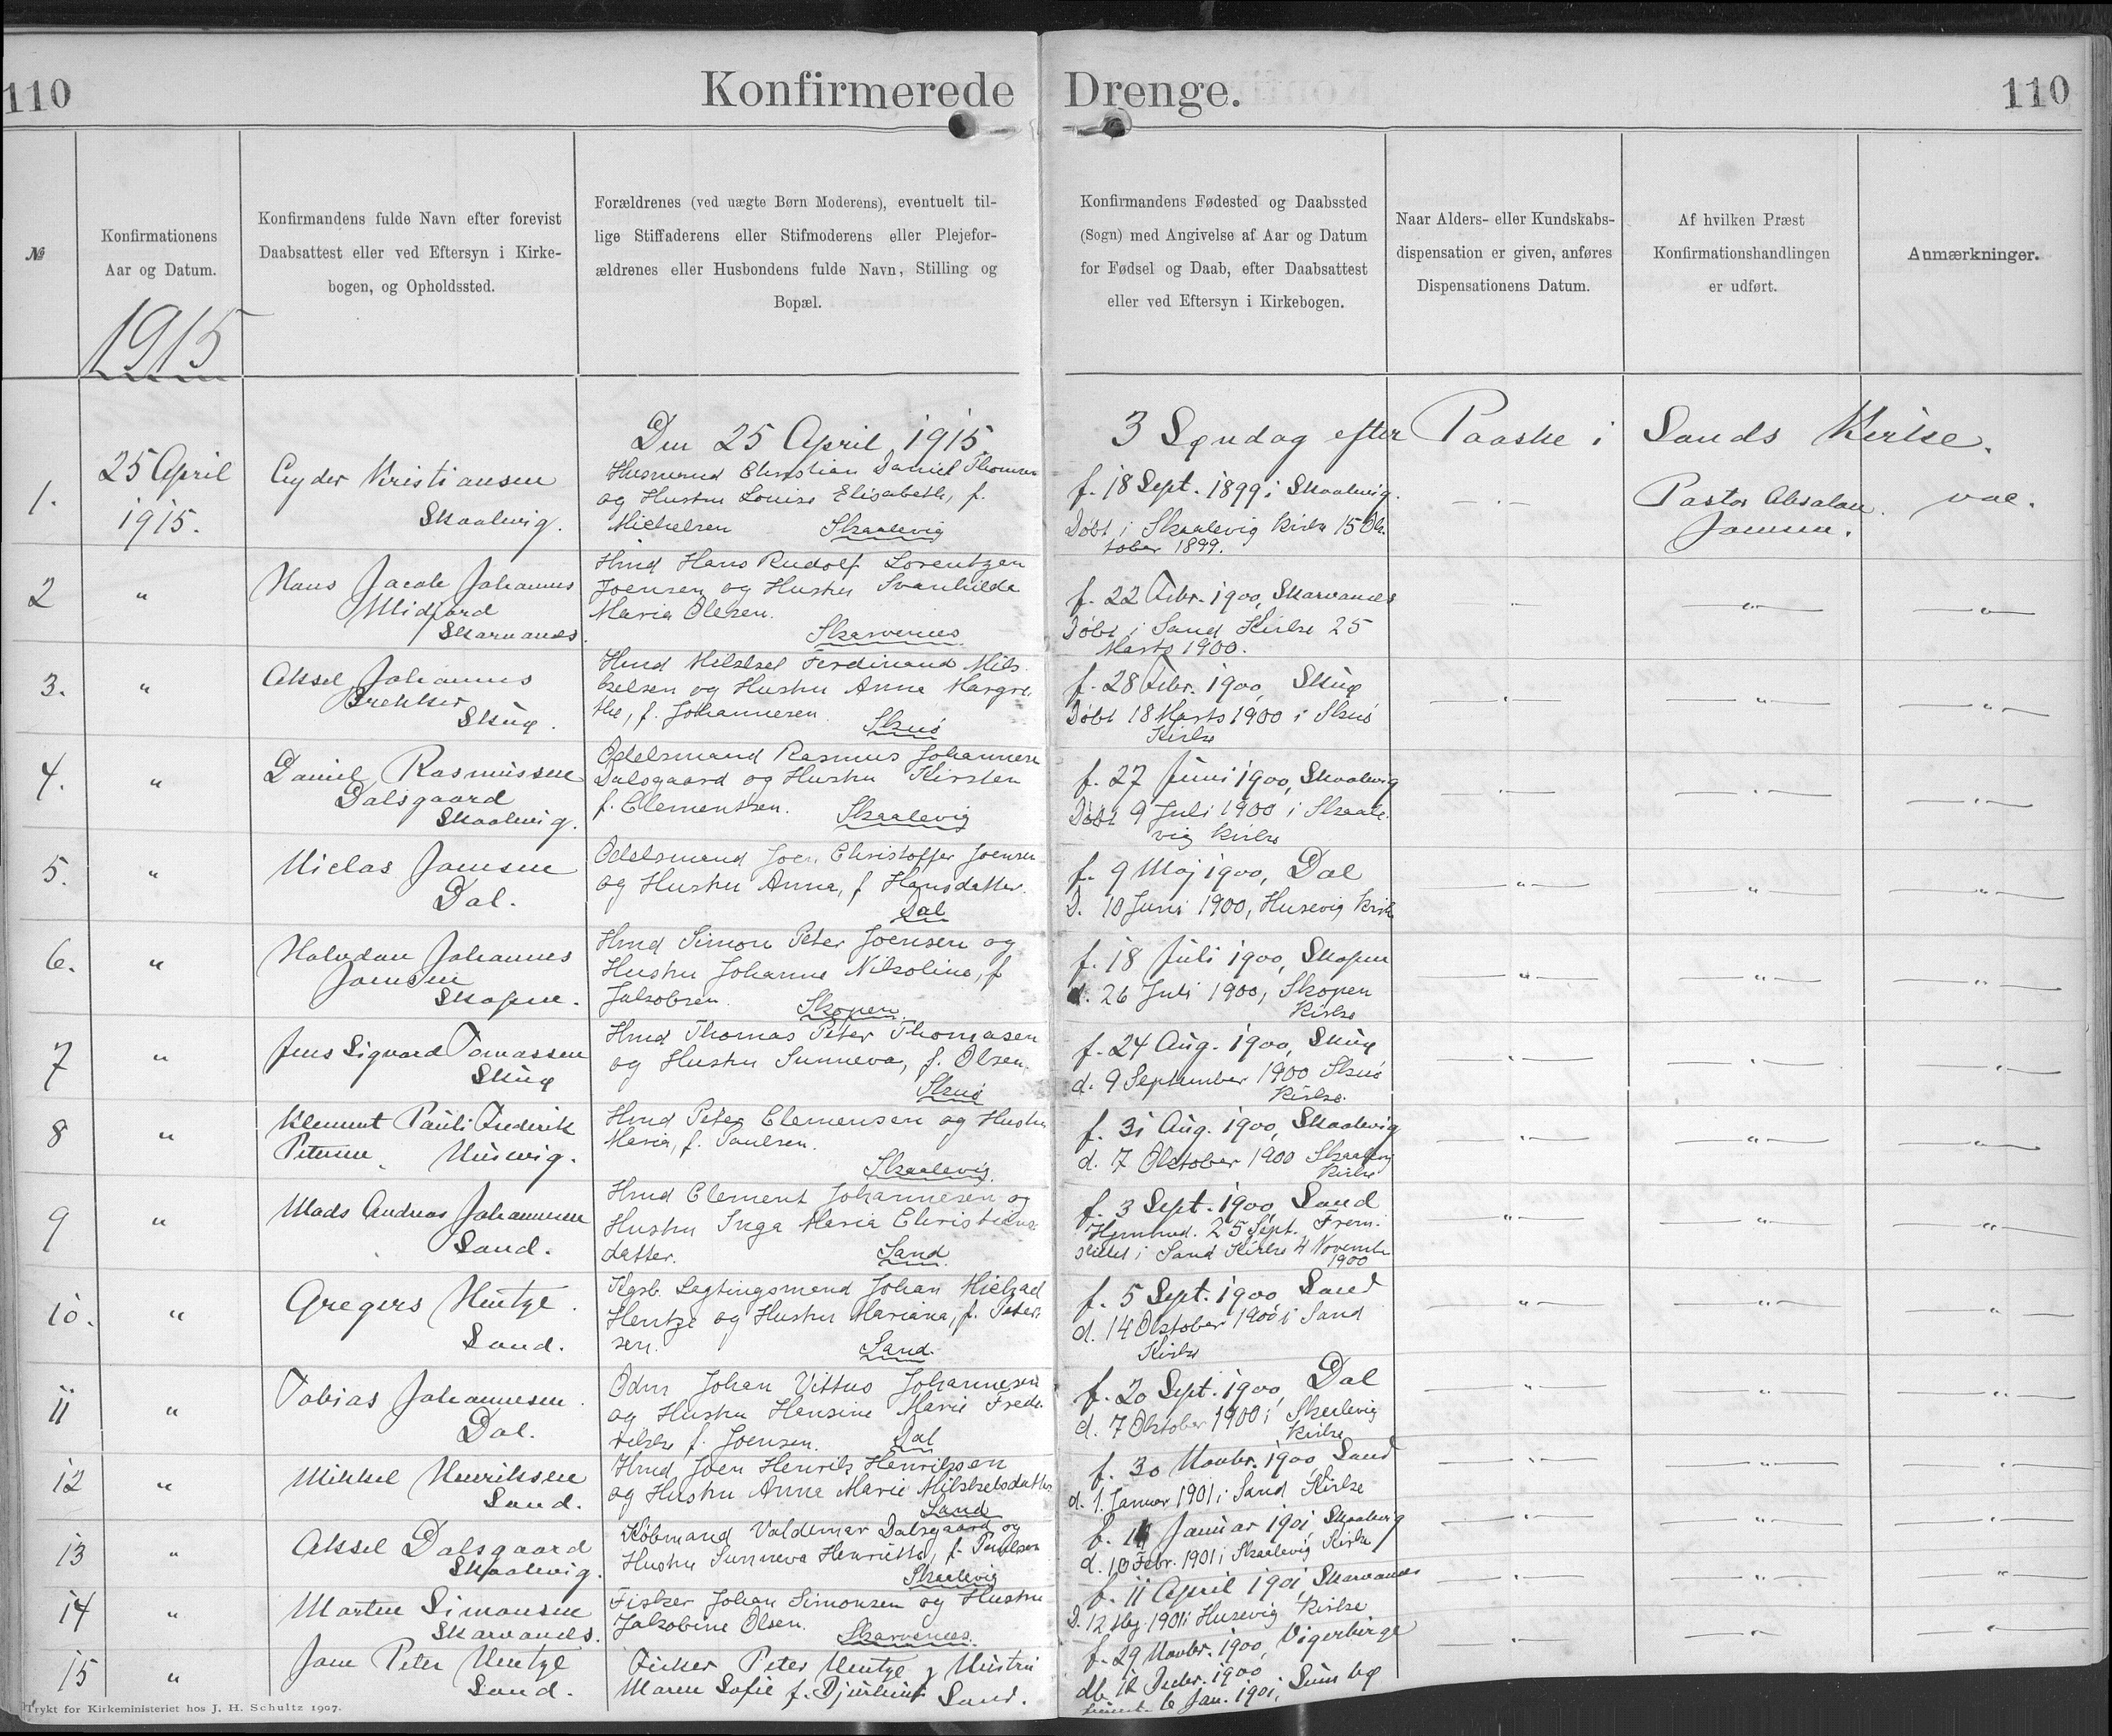 110
Konfirmerede Drenge.
110
№
Konfirmationens
Aar og Datum.
1915
Konfirmandens fulde Navn efter forevist
Daabsattest eller ved Eftersyn i Kirke-
bogen, og Opholdssted.
Forældrenes (ved uægte Børn Moderens), eventuelt til-
lige Stiffaderens eller Stifmoderens eller Plejefor-
ældrenes eller Husbondens fulde Navn, Stilling og
Bopæl.
Konfirmandens Fødested og Daabssted
(Sogn) med Angivelse af Aar og Datum
for Fødsel og Daab, efter Daabsattest
eller ved Eftersyn i Kirkebogen.
Naar Alders- eller Kundskabs-
dispensation er given, anføres
Dispensationens Datum.
Af hvilken Præst
Konfirmationshandlingen
er udført.
Anmærkninger.
Den 25 April 1915 3 Søndag efter Paaske i Sands Kirke.
1.
25 April
1915.
Kristiansen
Skaalevig.
Husmend Christian Daniel Thomsen
og Hustru Louise Elisabeth, f.
Michelsen Skaalevig
f. 18 Sept. 1899 i Skaalevig.
Døbt i Skaalevig Kirke 15 Ok-
tober 1899.
Pastor Absalon
Joensen.
vac.
2 "
Hans Jacob Johannes
Midjord
Skarvanes.
Hmd Hans Rudolf Lorentzen
Joensen og Hustru Svanhilda
Maria Olesen.
Skarvenes
f. 22 Febr. 1900, Skarvanes
Døbt i Sand Kirke 25
Marts 1900.
3. "
Aksel Johannes
Brekker
Skúø.
Hmd Mikkel Ferdinand Mik-
kelsen og Hustru Anna Margre-
the, f. Johannesen.
Skuø
f. 28 Febr. 1900, Skúø
Døbt 18 Marts 1900 i Skuø
Kirke
4. "
Daniel Rasmussen
Dalsgaard
Skaalevig.
Odelsmand Rasmus Johannesen
Dalsgaard og Hustru Kirsten
f. Clementsen. Skaalevig
f. 27 Juni 1900, Skaalevig
Døbt 9 Juli 1900 i Skaale-
vig Kirke
5. "
Niclas Joensen
Dal.
Odelsmand Joen Christoffer Joensen
og Hustru Anna, f. Hansdatter.
Dal
f. 9 Maj 1900, Dal
D. 10 Juni 1900, Husevig Kirke
6. "
Halvdan Johannes
Joensen
Skopun.
Hmd Simon Peter Joensen og
Hustru Johanne Nikoline, f.
Jakobsen. Skopen
f. 18 Juli 1900, Skopun
d. 26 Juli 1900, Skopen
Kirke
7 "
Jens Sigvard Tomassen
Skúø
Hmd Thomas Peter Thomasen
og Hustru Sunneva, f. Olsen.
Skuø
f. 24 Aug. 1900, Skúø
d. 9 September 1900 Skuø
Kirke.
8 "
Klement Pauli Frederik
Petersen. Húsevig.
Hmd Peter Clemensen og Hustru
Maria, f. Paulsen.
Skaalevig.
f. 31 Aug. 1900, Skaalevig
d. 7 Oktober 1900 Skaalevig
Kirke
9 "
Mads Andreas Johannesen
Sand.
Hmd Clement Johannesen og
Hustru Inga Maria Christians-
datter. Sand
f. 3 Sept. 1900, Sand
Hjemhud. 25 Sept. Frem-
stillet i Sand Kirke 4 November
1900
10. "
Gregers Hentze.
Sand.
Kgsb. Lagtingsmand Johan Michael
Hentze og Hustru Mariana, f. Peter-
sen. Sand.
f. 5 Sept. 1900, Sand
d. 14 Oktober 1900 i Sand
Kirke
11 "
Tobias Johannesen.
Dal.
Odm Johan Vittus Johannesen
og Hustru Hansine Marie Frede-
rikke f. Joensen. Dal
f. 20 Sept. 1900, Dal
d. 7 Oktober 1900 i Skaalevig
Kirke
12 "
Mikkel Henriksen
Sand.
Hmd Joen Henrik Henriksen
og Hustru Anna Marie Mikkelsdatter
Sand
f. 30 Novbr. 1900, Sand
d. 1. Januar 1901 i Sand Kirke
13 "
Aksel Dalsgaard
Skaalevig.
Købmand Valdemar Dalsgaard og
Hustru Sunneva Henriette, f. Poulsen
Skaalevig
f. Januar 1901, Skaalevig
d. 10 Febr. 1901 i Skaalevig Kirke
14 "
Morten Simonsen
Skarvanes.
Fisker Johan Simonsen og Hustru
Jakobine Olsen. Skarvenes.
f. 11 April 1901, Skarvanes
D. 12 Maj 1901 i Husevig Kirke
15 "
Peter Hentze
Sand.
Fisker Peter Hentze og Hústrú
Maren Sofie f. Djurhuus Sand.
f. 29 Novbr. 1900, Vigerbirge
db. 12 Decbr. 1900
6 Jan. 1901, Sumbø
Trykt for Kirkeministeriet hos J. H. Schultz 1907.